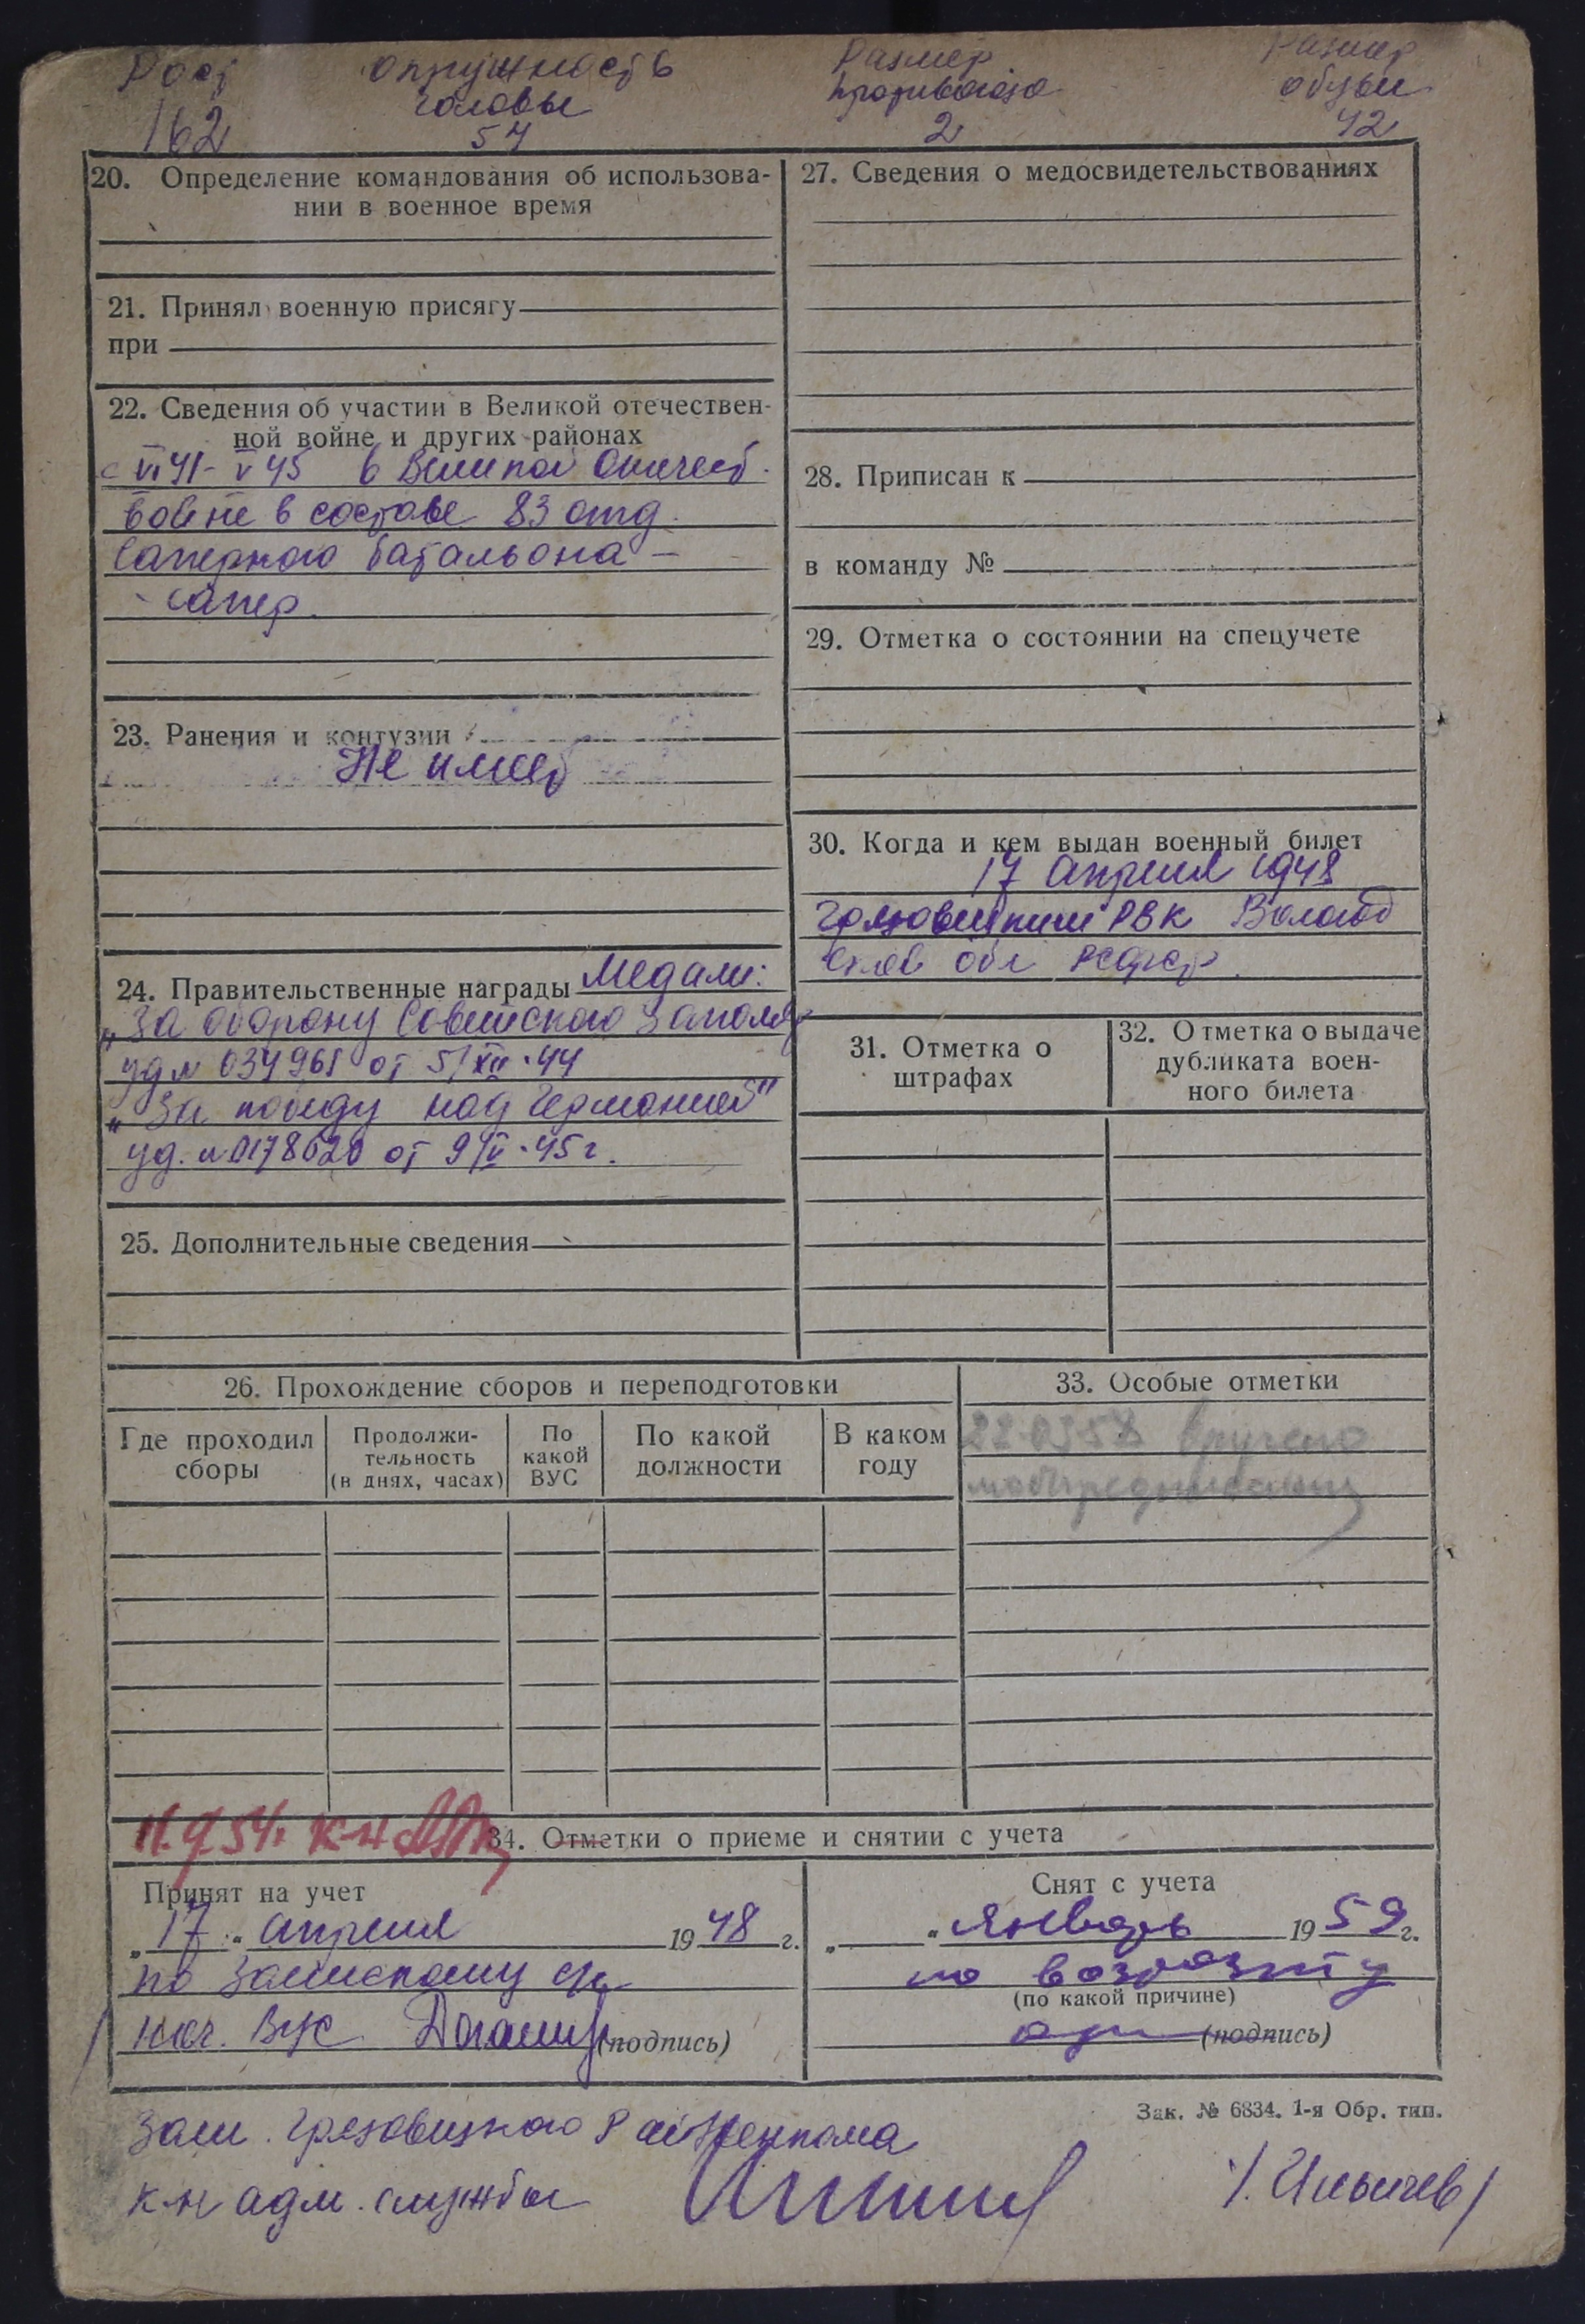 Рост Окружность Размер Размер
головы противогаза обуви
162 57 2 42
20. Определение командования об использова-
нии в военное время
21. Принял военную присягу
при
22. Сведения об участии в Великой отечествен-
ной войне и других районах
с VI 41 - V 45 в Великой Отечеств.
войне в составе 83 отд.
саперного батальона -
- сапер.
23. Ранения и контузии
Не имеет
24. Правительственные награды Медали:
„За оборону Советского Заполяр
уд № 034961 от 5/XII-44
„За победу над Германией"
уд. № 0178620 от 9/V-45 г.
25. Дополнительные сведения
27. Сведения о медосвидетельствованиях
28. Приписан к
в команду №
29. Отметка о состоянии на спецучете
30. Когда и кем выдан военный билет
17 апреля 1948
Грязовецким РВК Вологод
ской обл РСФСР
31. Отметка о
штрафах
32. Отметка о выдаче
дубликата воен-
ного билета
26. Прохождение сборов и переподготовки
Где проходил
сборы
Продолжи-
тельность
(в днях, часах)
По
какой
ВУС
По какой
должности
В каком
году
33. Особые отметки
вручено
мобпредписание
34. Отметки о приеме и снятии с учета
Принят на учет
„17" апреля 1948 г.
по
нач. ВУС (подпись)
Снят с учета
„ " Январь 1959 г.
по возрасту
(по какой причине)
(подпись)
Зак. № 6834. 1-я Обр. тип.
Грязовецкого Райвоенкома
к-н адм. службы /Ильичев/